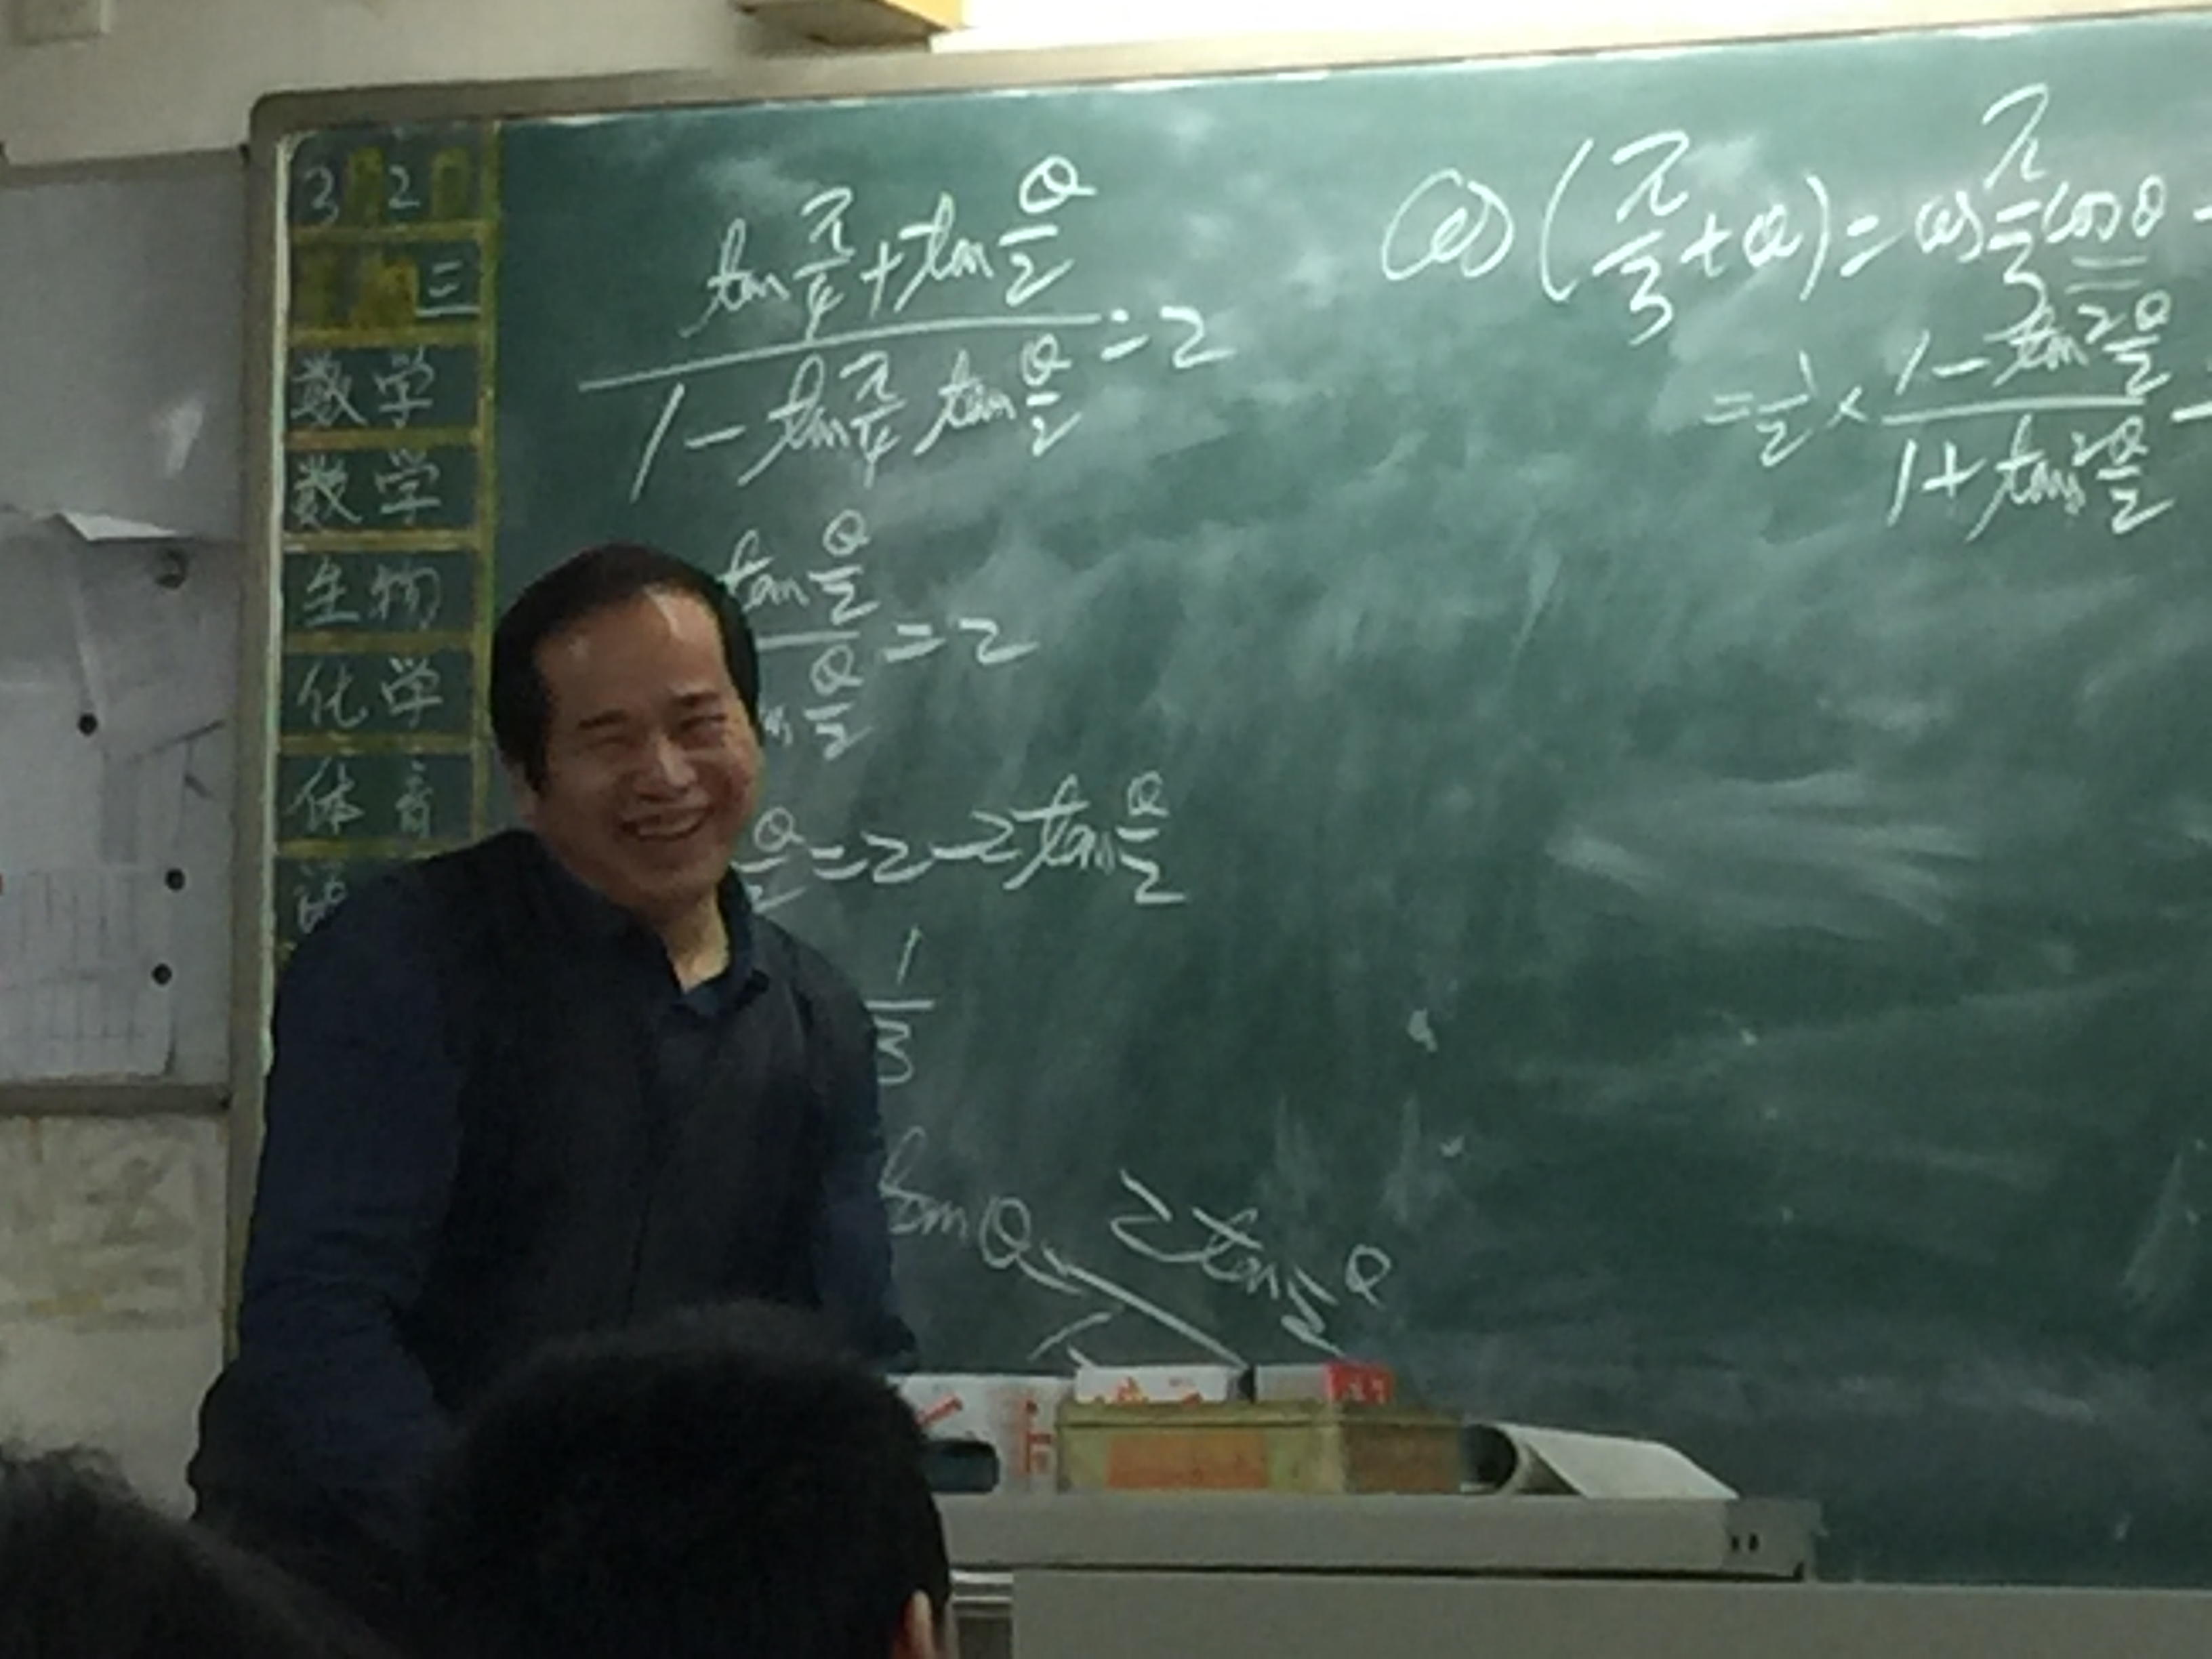 3 2
三
数学
数学
生物
化学
体育
tan π/4 + tan θ/2
/ 1 - tan π/4 tan θ/2 = 2
tan θ/2
/ θ/2 = 2
θ/2 = 2 - 2tan θ/2
1/3
tan θ 2tan θ
cos(π/3 + θ) = cos π/3 cos θ -
= 1/2 × (1 - tan² θ/2) / (1 + tan² θ/2) -